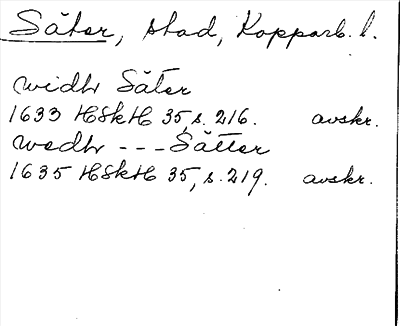 Säter, stad, Kopparb. l.
widhr Säter
1633 HSkH 35, s. 216. avskr.
wedhr --- Sätter
1635 HSkH 35, s. 219. avskr.